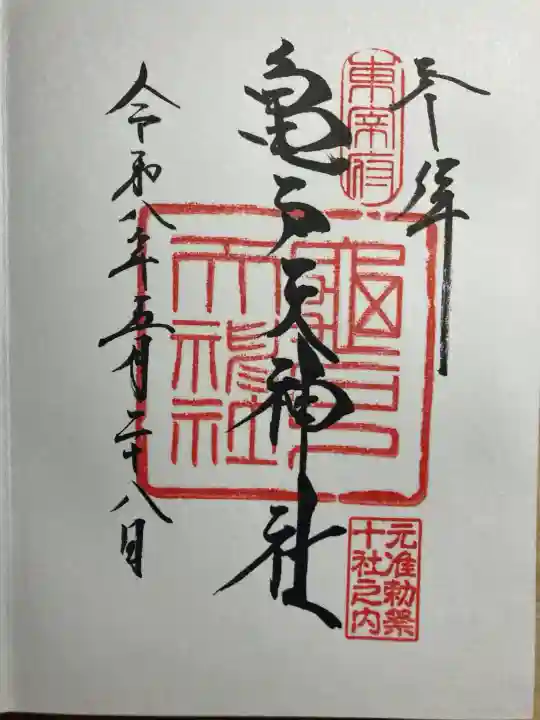 参拝
東宰府
亀戸天神社
亀戸
天神社
元准勅祭
十社之内
令和八年五月二十八日